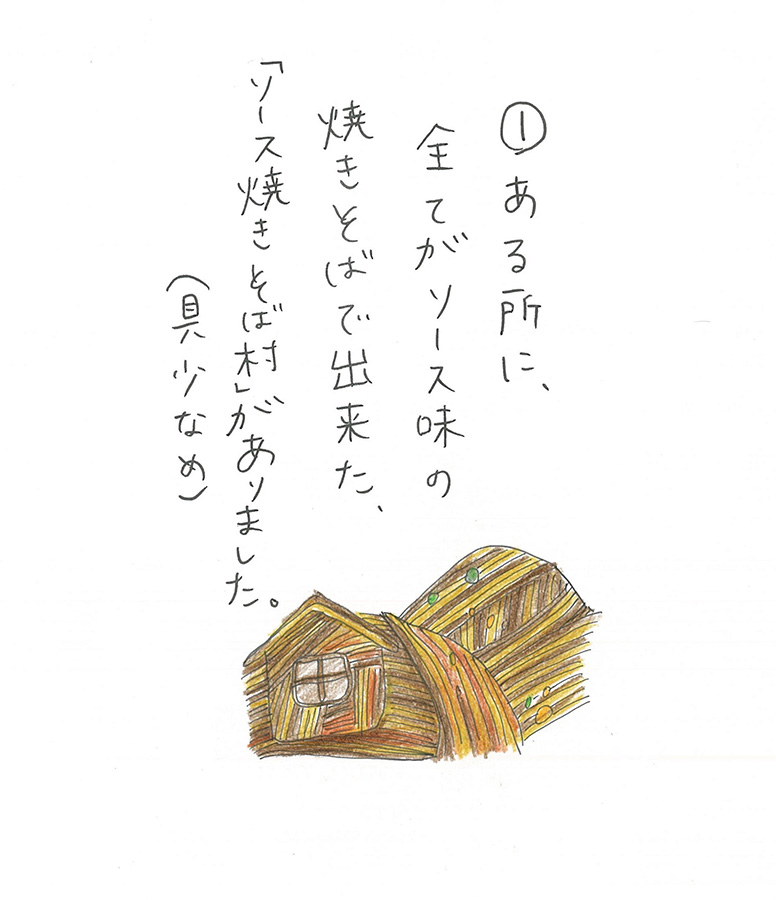 ①ある所に、
全てがソース味の
焼きそばで出来た、
「ソース焼きそば村」がありました。
(具少なめ)